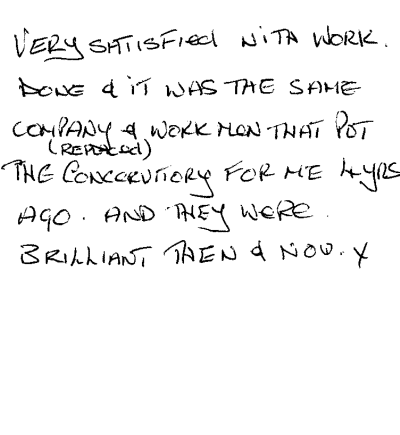 VERY SATISFIED WITH WORK.
DONE & IT WAS THE SAME
COMPANY & WORKMEN THAT PUT
(REPLACED)
THE CONCERVITORY FOR ME 4YRS
AGO. AND THEY WERE.
BRILLIANT THEN & NOW. X